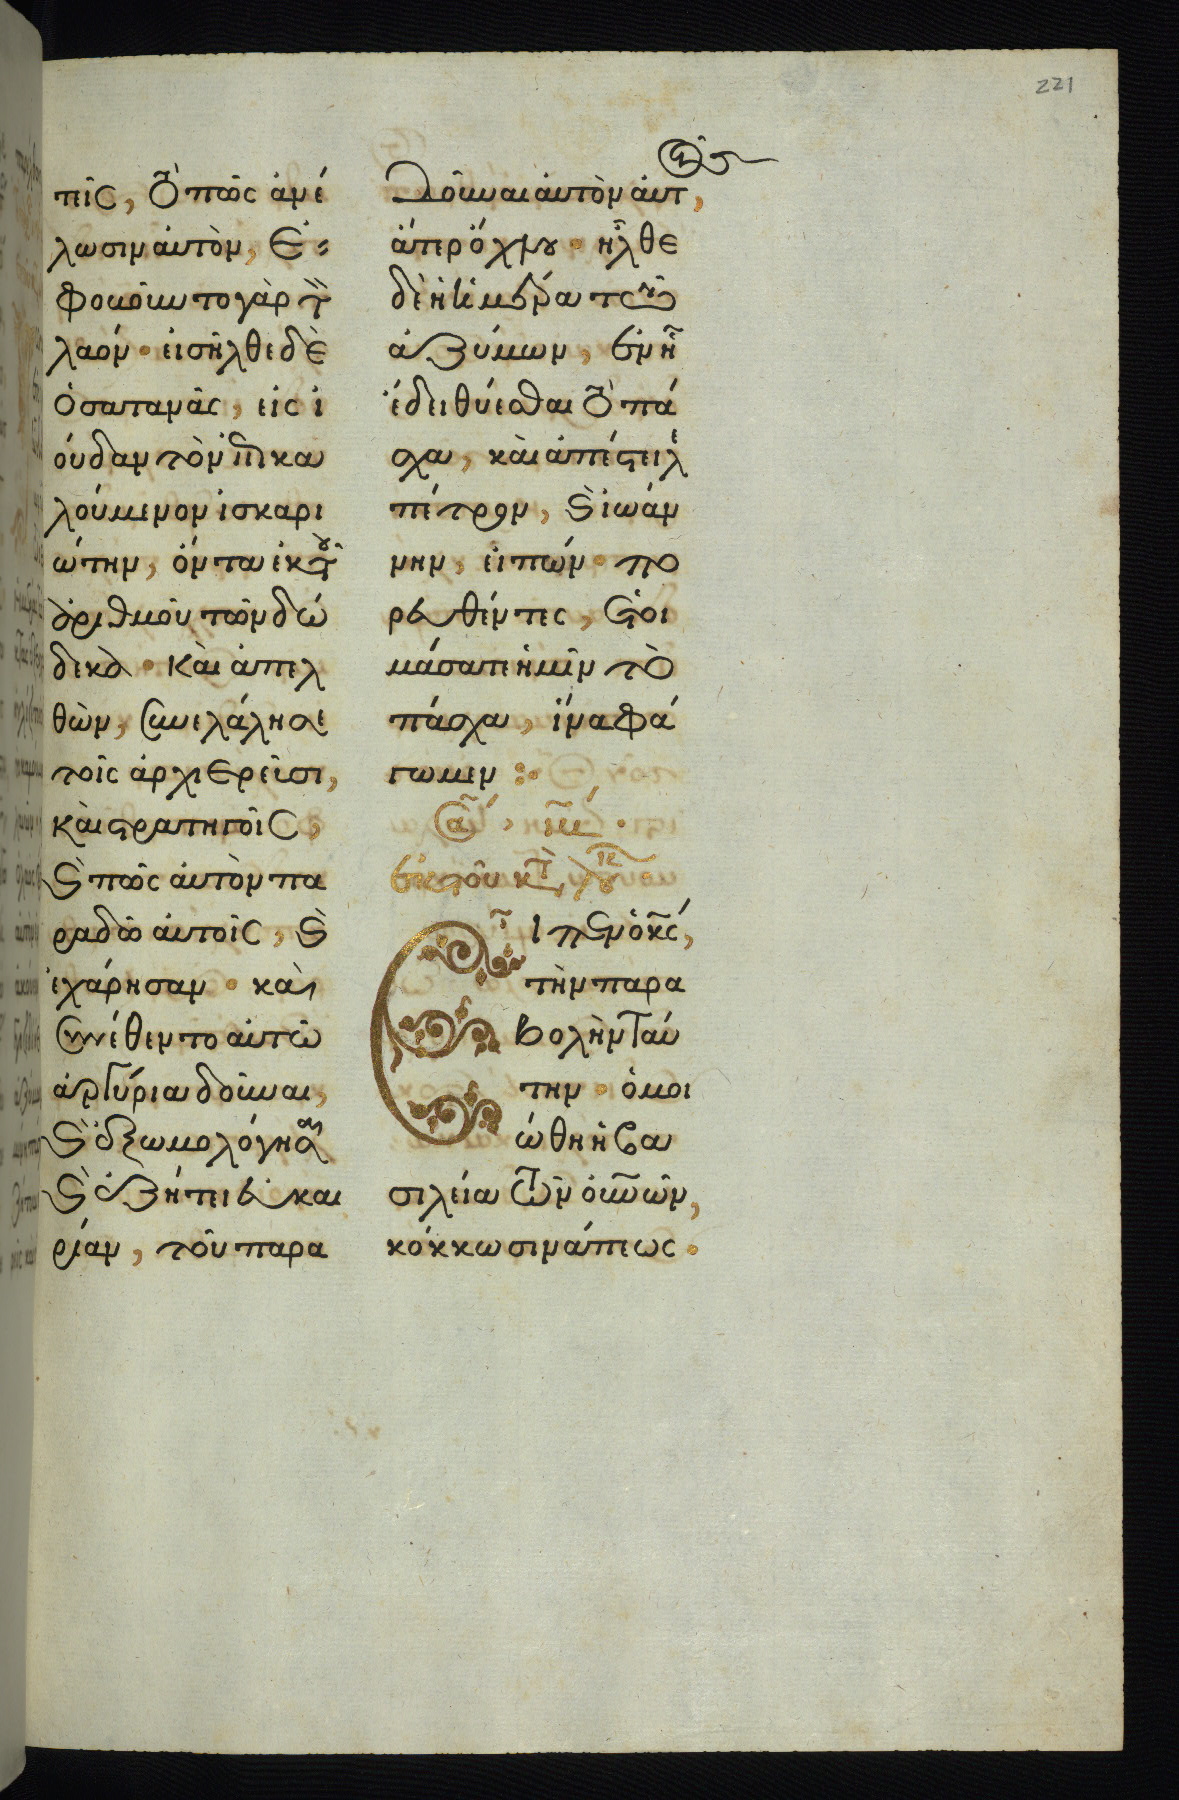 221
τεῖς, τὸ πῶς ἀνέ
λωσιν αὐτὸν, ἐ
φοβοῦντο γὰρ τὸν
λαόν. εἰσῆλθε δὲ
ὁ σατανᾶς, εἰς ἰ
ούδαν τὸν ἐπικα
λούμενον ἰσκαρι
ώτην, ὄντα ἐκ τοῦ
ἀριθμοῦ τῶν δώ
δεκα. Καὶ ἀπελ
θὼν, συνελάλησε
τοῖς ἀρχιερεῦσι,
καὶ στρατηγοῖς,
καὶ πῶς αὐτὸν πα
ραδῶ αὐτοῖς, καὶ
ἐχάρησαν. καὶ
συνέθεντο αὐτῶ
ἀργύρια δοῦναι,
καὶ ἐξωμολόγησεν
καὶ ἐζήτει εὐκαι
ρίαν, τοῦ παρα
δοῦναι αὐτὸν αὐτοῖς,
ἄτερ ὄχλου. ἦλθε
δὲ ἡ ἡμέρα τῶν
ἀζύμων, ἐν ἧ
ἔδει θύεσθαι τὸ πά
σχα, καὶ ἀπέστειλε
πέτρον, καὶ ἰωάν
νην, εἰπών. πο
ρευθέντες, ἑτοι
μάσατε ἡμῖν τὸ
πάσχα, ἵνα φά
γωμεν :
ἐκ τοῦ κατὰ λουκᾶν
Εἶπεν ὁ κς,
τὴν παρα
βολὴν ταύ
την. ὁμοι
ώθη ἡ βα
σιλεία τῶν οὐνῶν,
κόκκω σινάπεως.